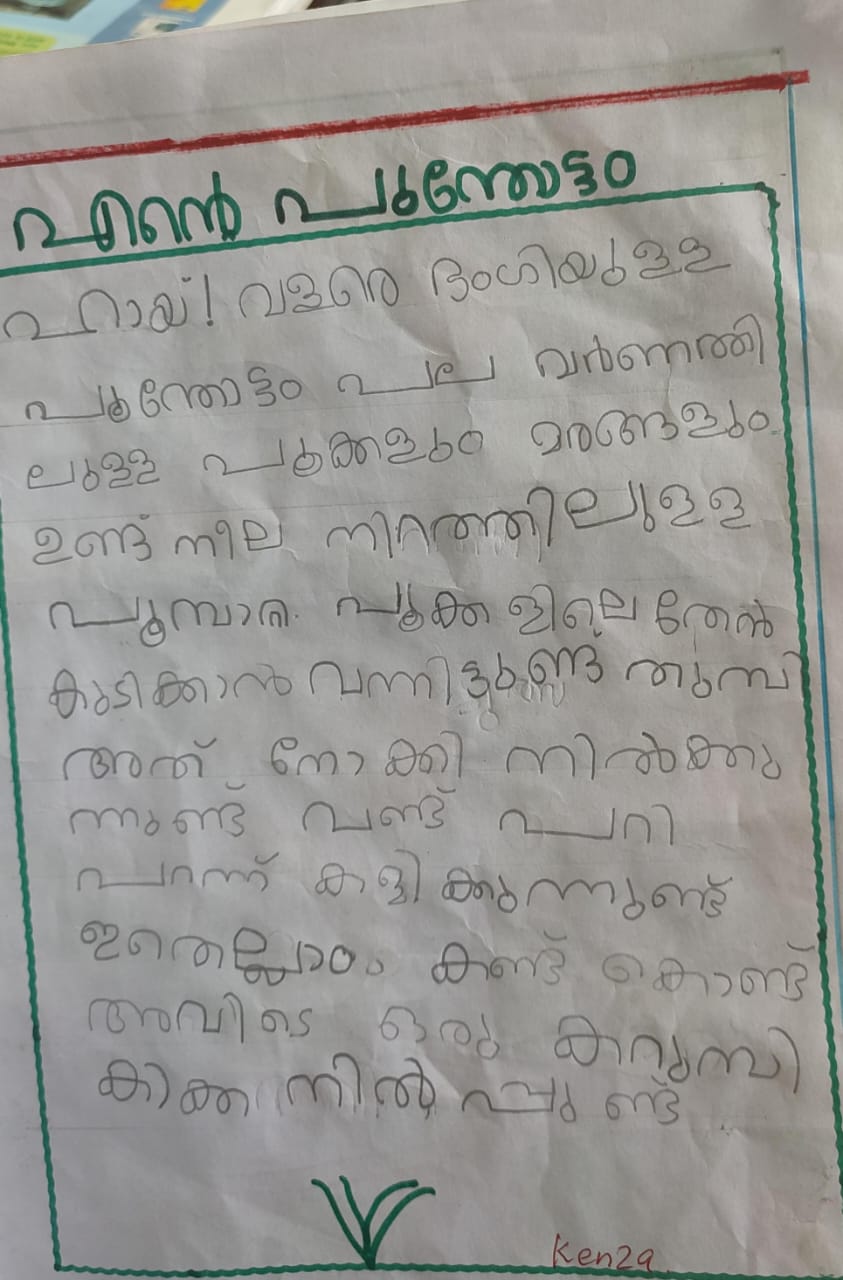 എന്റെ പൂന്തോട്ടം
ഹായ്! വളരെ ഭംഗിയുള്ള
പൂന്തോട്ടം പല വർണ്ണത്തി
ലുള്ള പൂക്കളും മരങ്ങളും
ഉണ്ട് നീല നിറത്തിലുള്ള
പൂമ്പാറ്റ. പൂക്കളിലെ തേൻ
കുടിക്കാൻ വന്നിട്ടുണ്ട് തുമ്പി
അത് നോക്കി നിൽക്കു
ന്നുണ്ട് വണ്ട് പാറി
പറന്ന് കളിക്കുന്നുണ്ട്
ഇതെല്ലാം കണ്ട് കൊണ്ട്
അവിടെ ഒരു കുറുമ്പി
കാക്ക നിൽപ്പുണ്ട്
Kenza